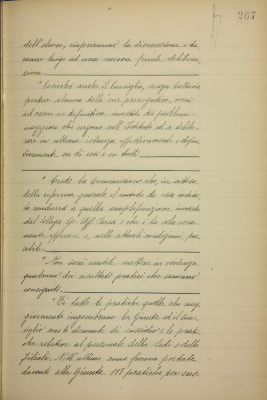 267
dell'elenco, riapriranno la discussione e da-
ranno luogo ad una nuova finale delibera-
zione
"Cosicchè anche il Consiglio, senza tuttavia
perdere alcuna delle sue prerogative, verrà
ad essere in definitiva investito dei problemi
maggiori che urgono nell'Istituto ed a delibe-
rare in ultima istanza effettivamente e defini-
tivamente su di essi e su tutti.
"Crede la Commissione che, in attesa
della riforma generale, il metodo che essa
la condurrà a quella semplificazione, invocata
dal Collegio e che è la sola vera-
mente efficace e, nelle attuali condizioni, pos-
sibile.
"Non sarà inutile mettere in evidenza
qualcuno dei risultati pratici che saranno
conseguiti.
"Di tutte le pratiche quelle che mag-
giormente ingombrano la Giunta ed il Con-
siglio sono le domande di sussidio e le prati-
che relative al personale della Sede e delle
Filiali. Nell'ultimo anno furono portate
davanti alla Giunta 118 pratiche per